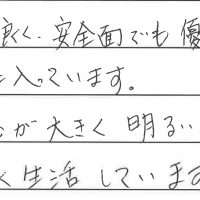 良く、安全面でも優
に入っています。
が大きく明るい
く生活しています